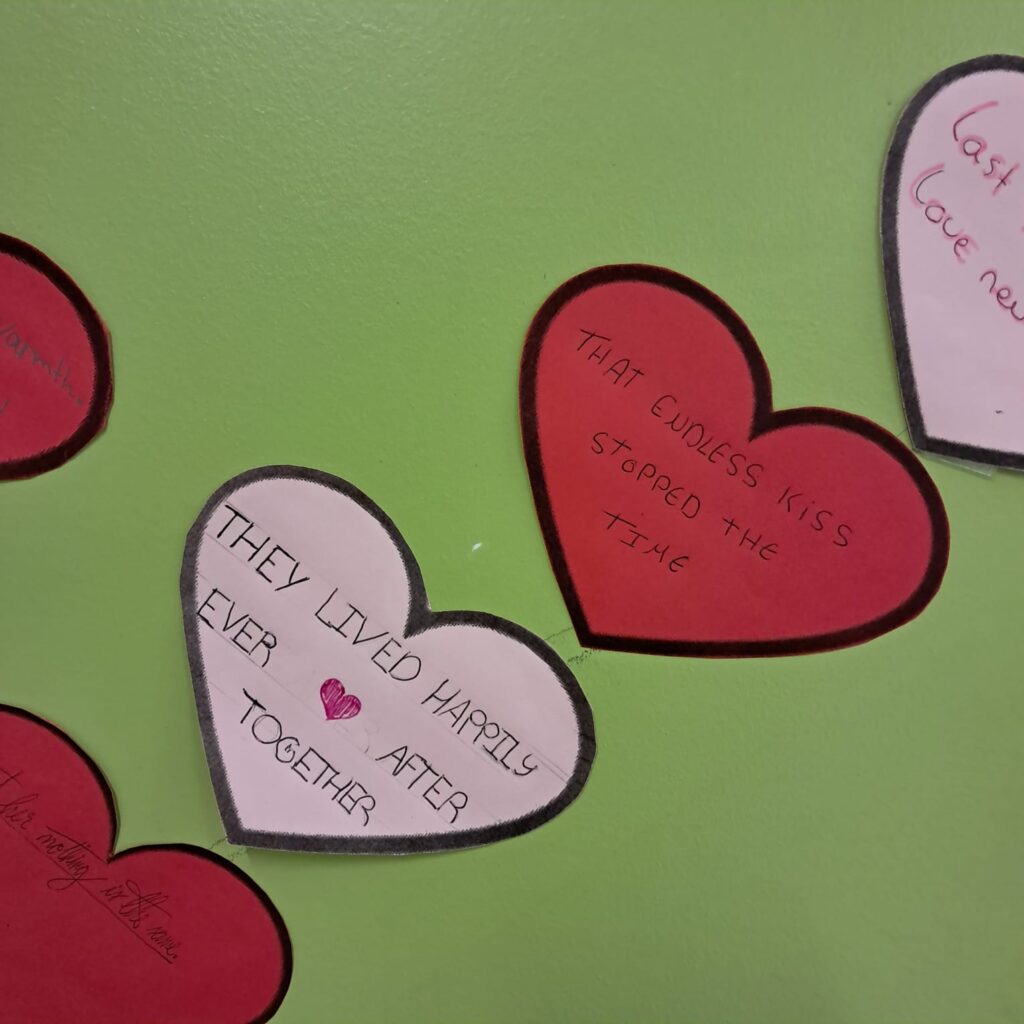 Last
Love new
warmth.
THAT ENDLESS KISS
STOPPED THE
TIME
THEY LIVED HAPPILY
EVER AFTER
TOGETHER
her nothing is the same.